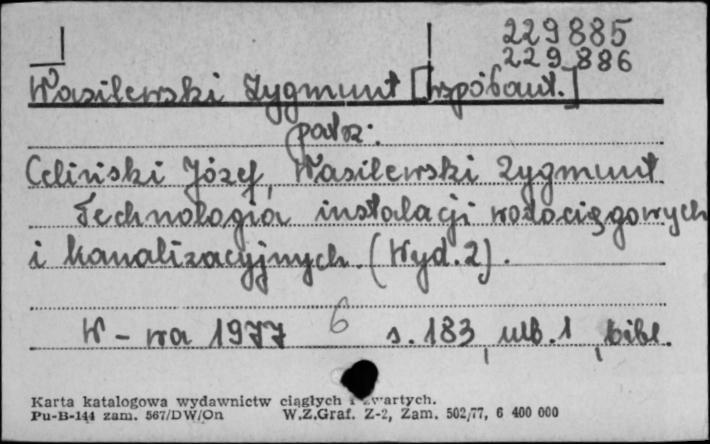 229885
229886
Wasilewski Zygmunt [współaut.]
patrz:
Celiński Józef, Wasilewski Zygmunt
Technologia instalacji wodociągowych
i kanalizacyjnych. (Wyd. 2).
W-wa 1977 6 s. 183, nlb. 1, bibl.
Karta katalogowa wydawnictw ciągłych i zwartych.
Pu-B-144 zam. 567/DW/On W.Z.Graf. Z-2, Zam. 502/77, 6 400 000